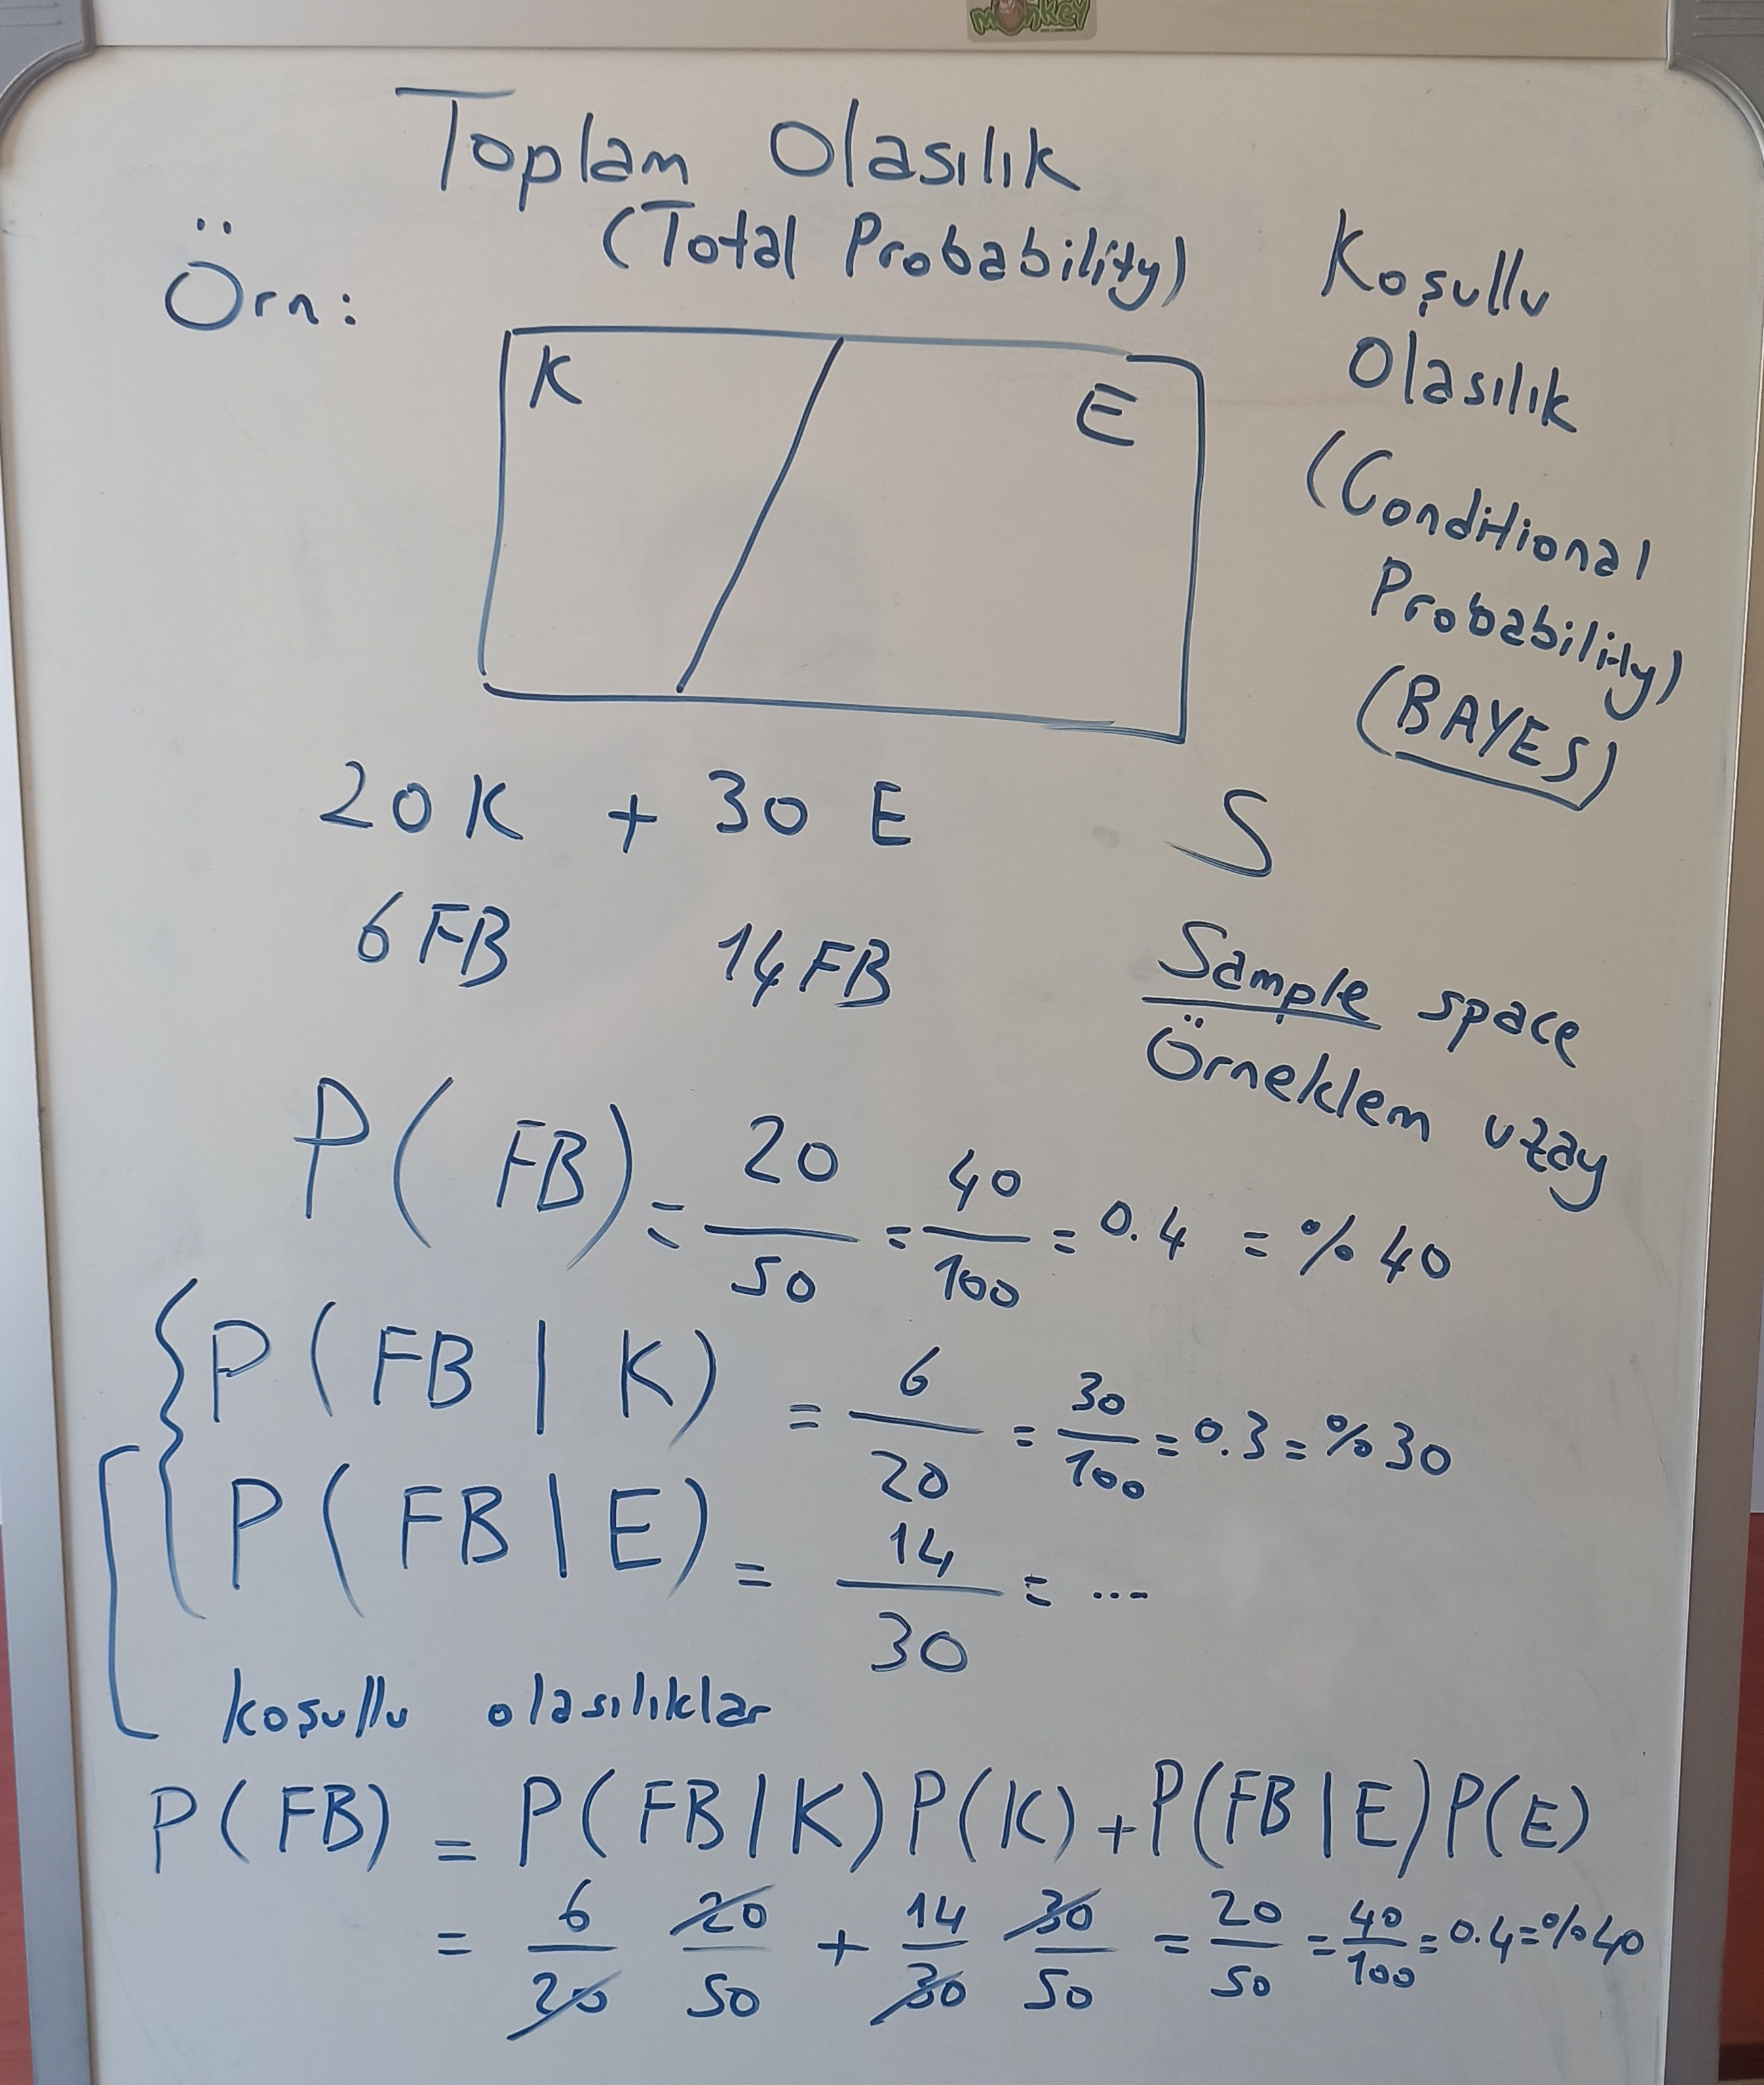 monkey
Toplam Olasılık
(Total Probability)
Örn:
Koşullu
Olasılık
(Conditional
Probability)
(BAYES)
K
E
20 K + 30 E
S
6 FB 14 FB
Sample space
Örneklem uzay
P( FB) = 20/50 = 40/100 = 0.4 = %40
P(FB | K) = 6/20 = 30/100 = 0.3 = %30
P(FB | E) = 14/30 = ...
koşullu olasılıklar
P(FB) = P(FB | K) P(K) + P(FB | E) P(E)
= 6/20 20/50 + 14/30 30/50 = 20/50 = 40/100 = 0.4 = %40